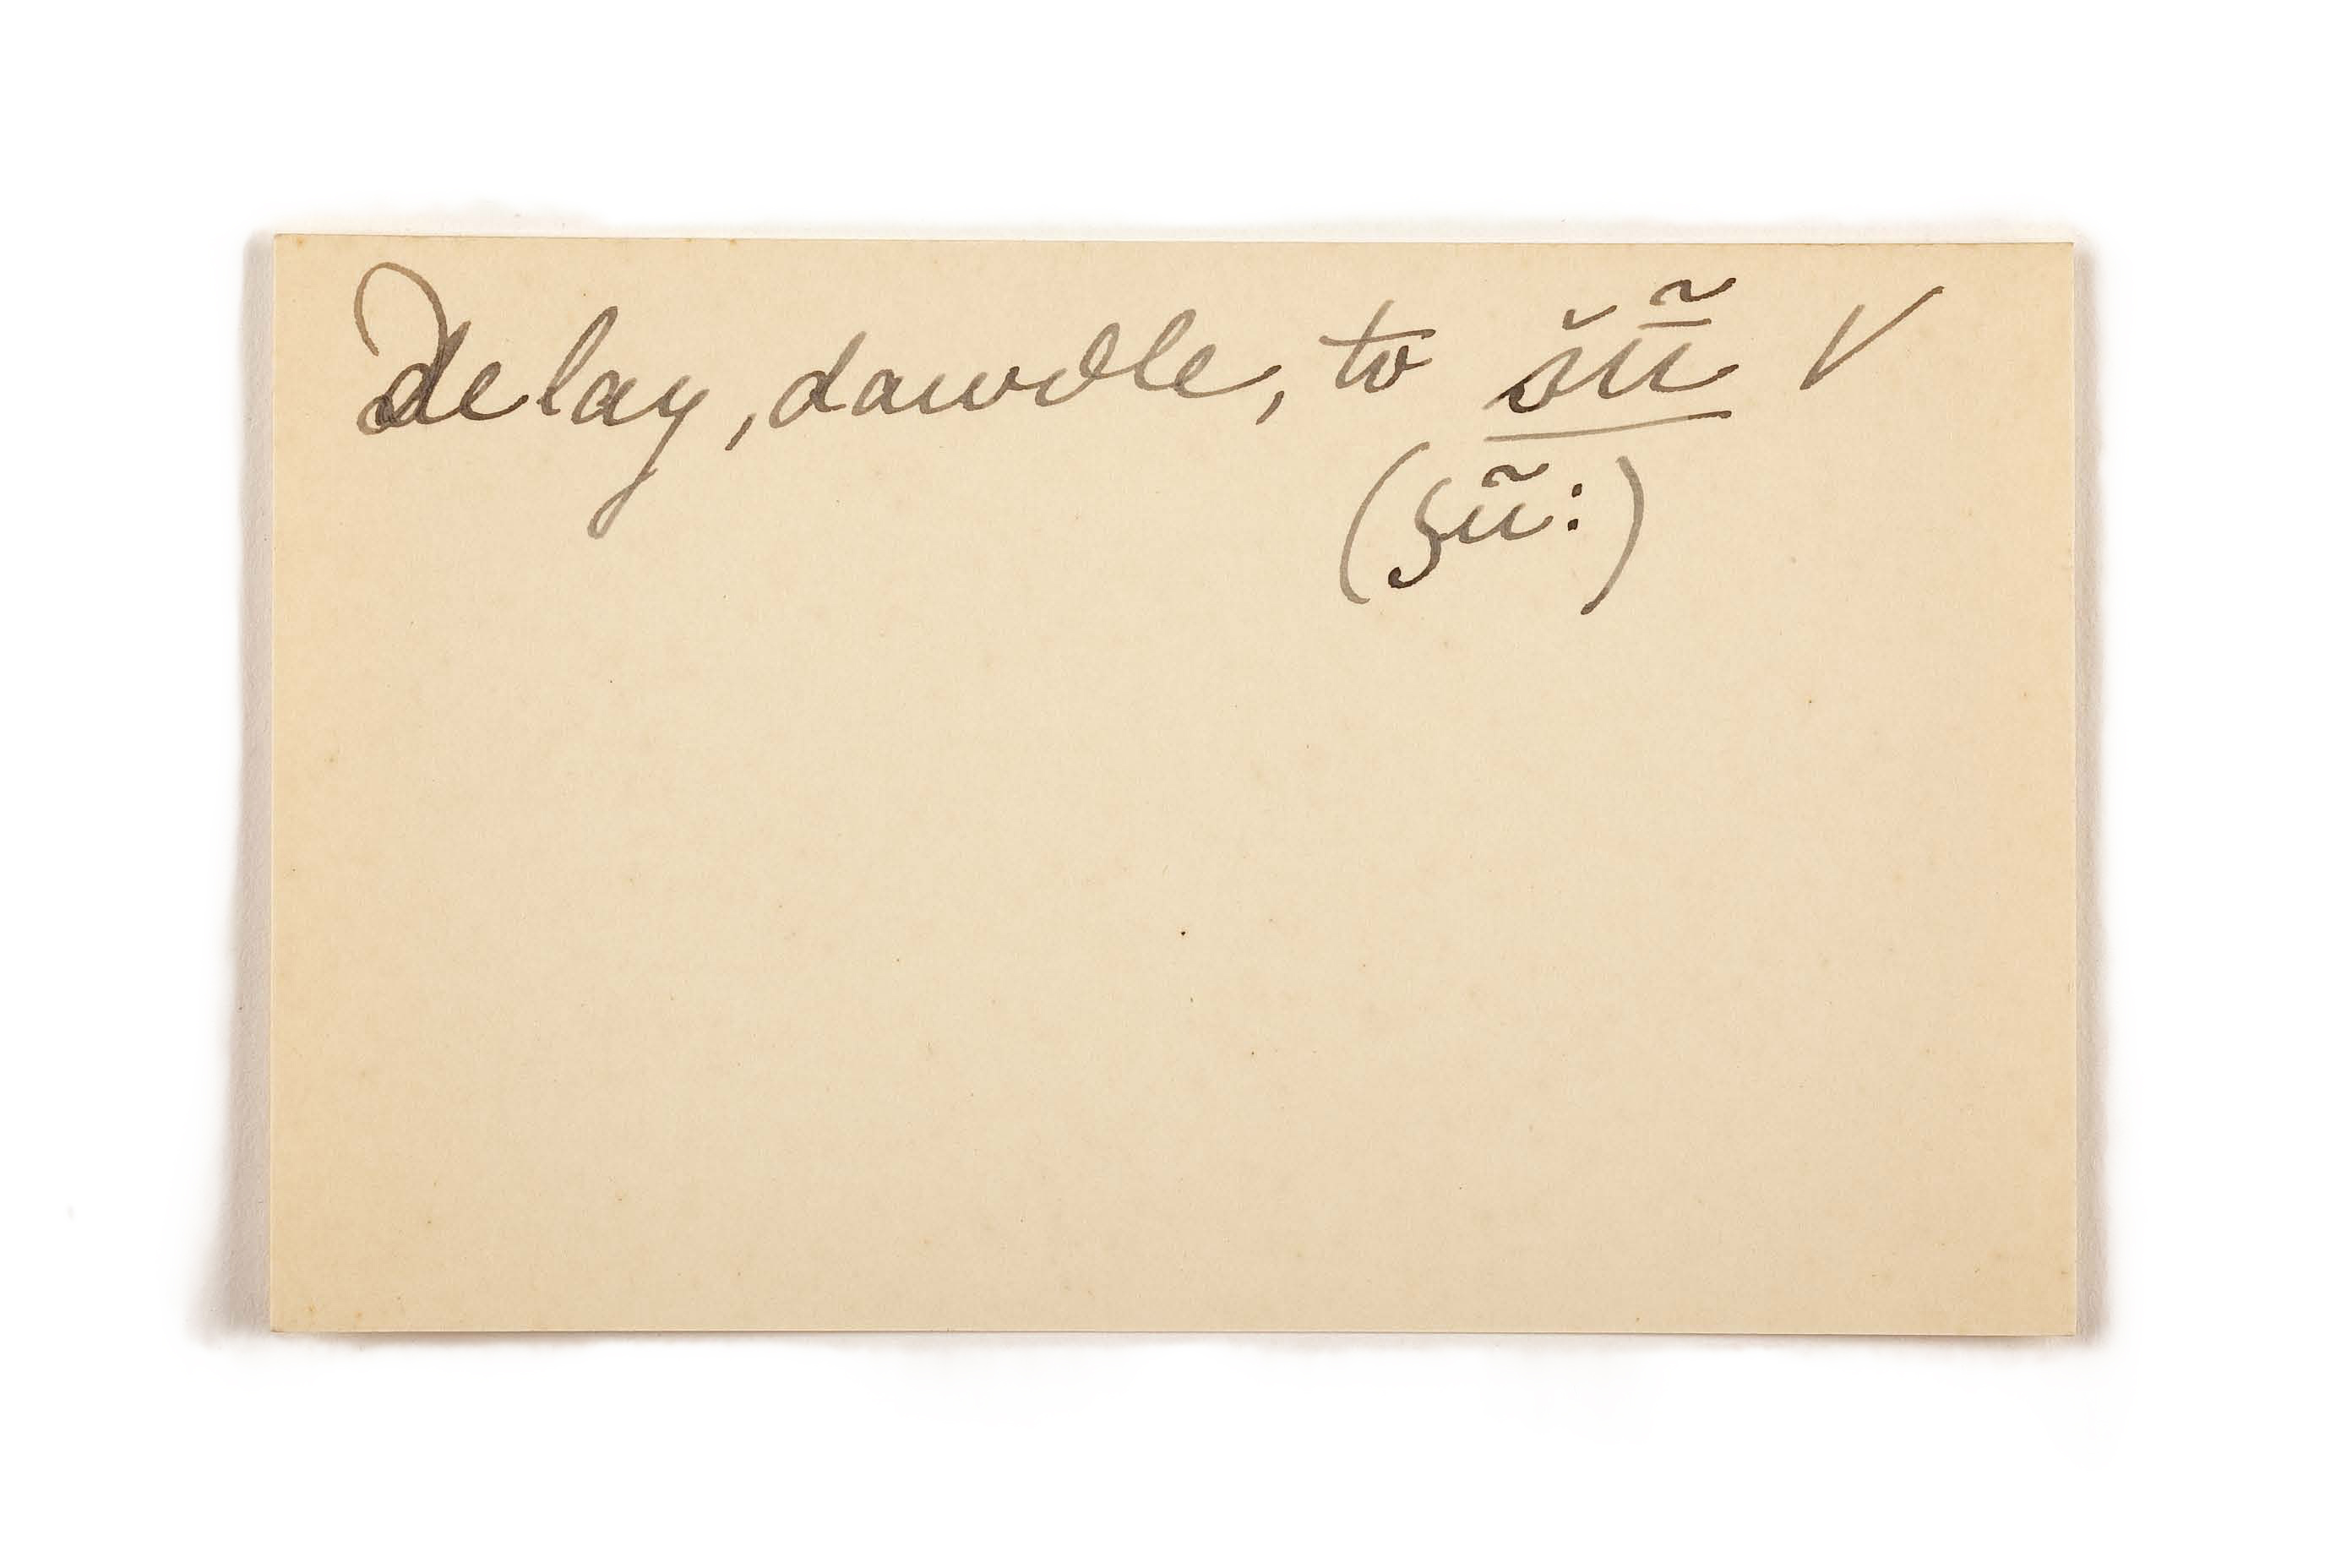 Delay, dawdle, to šū̃ ✓
(ʒũ:)